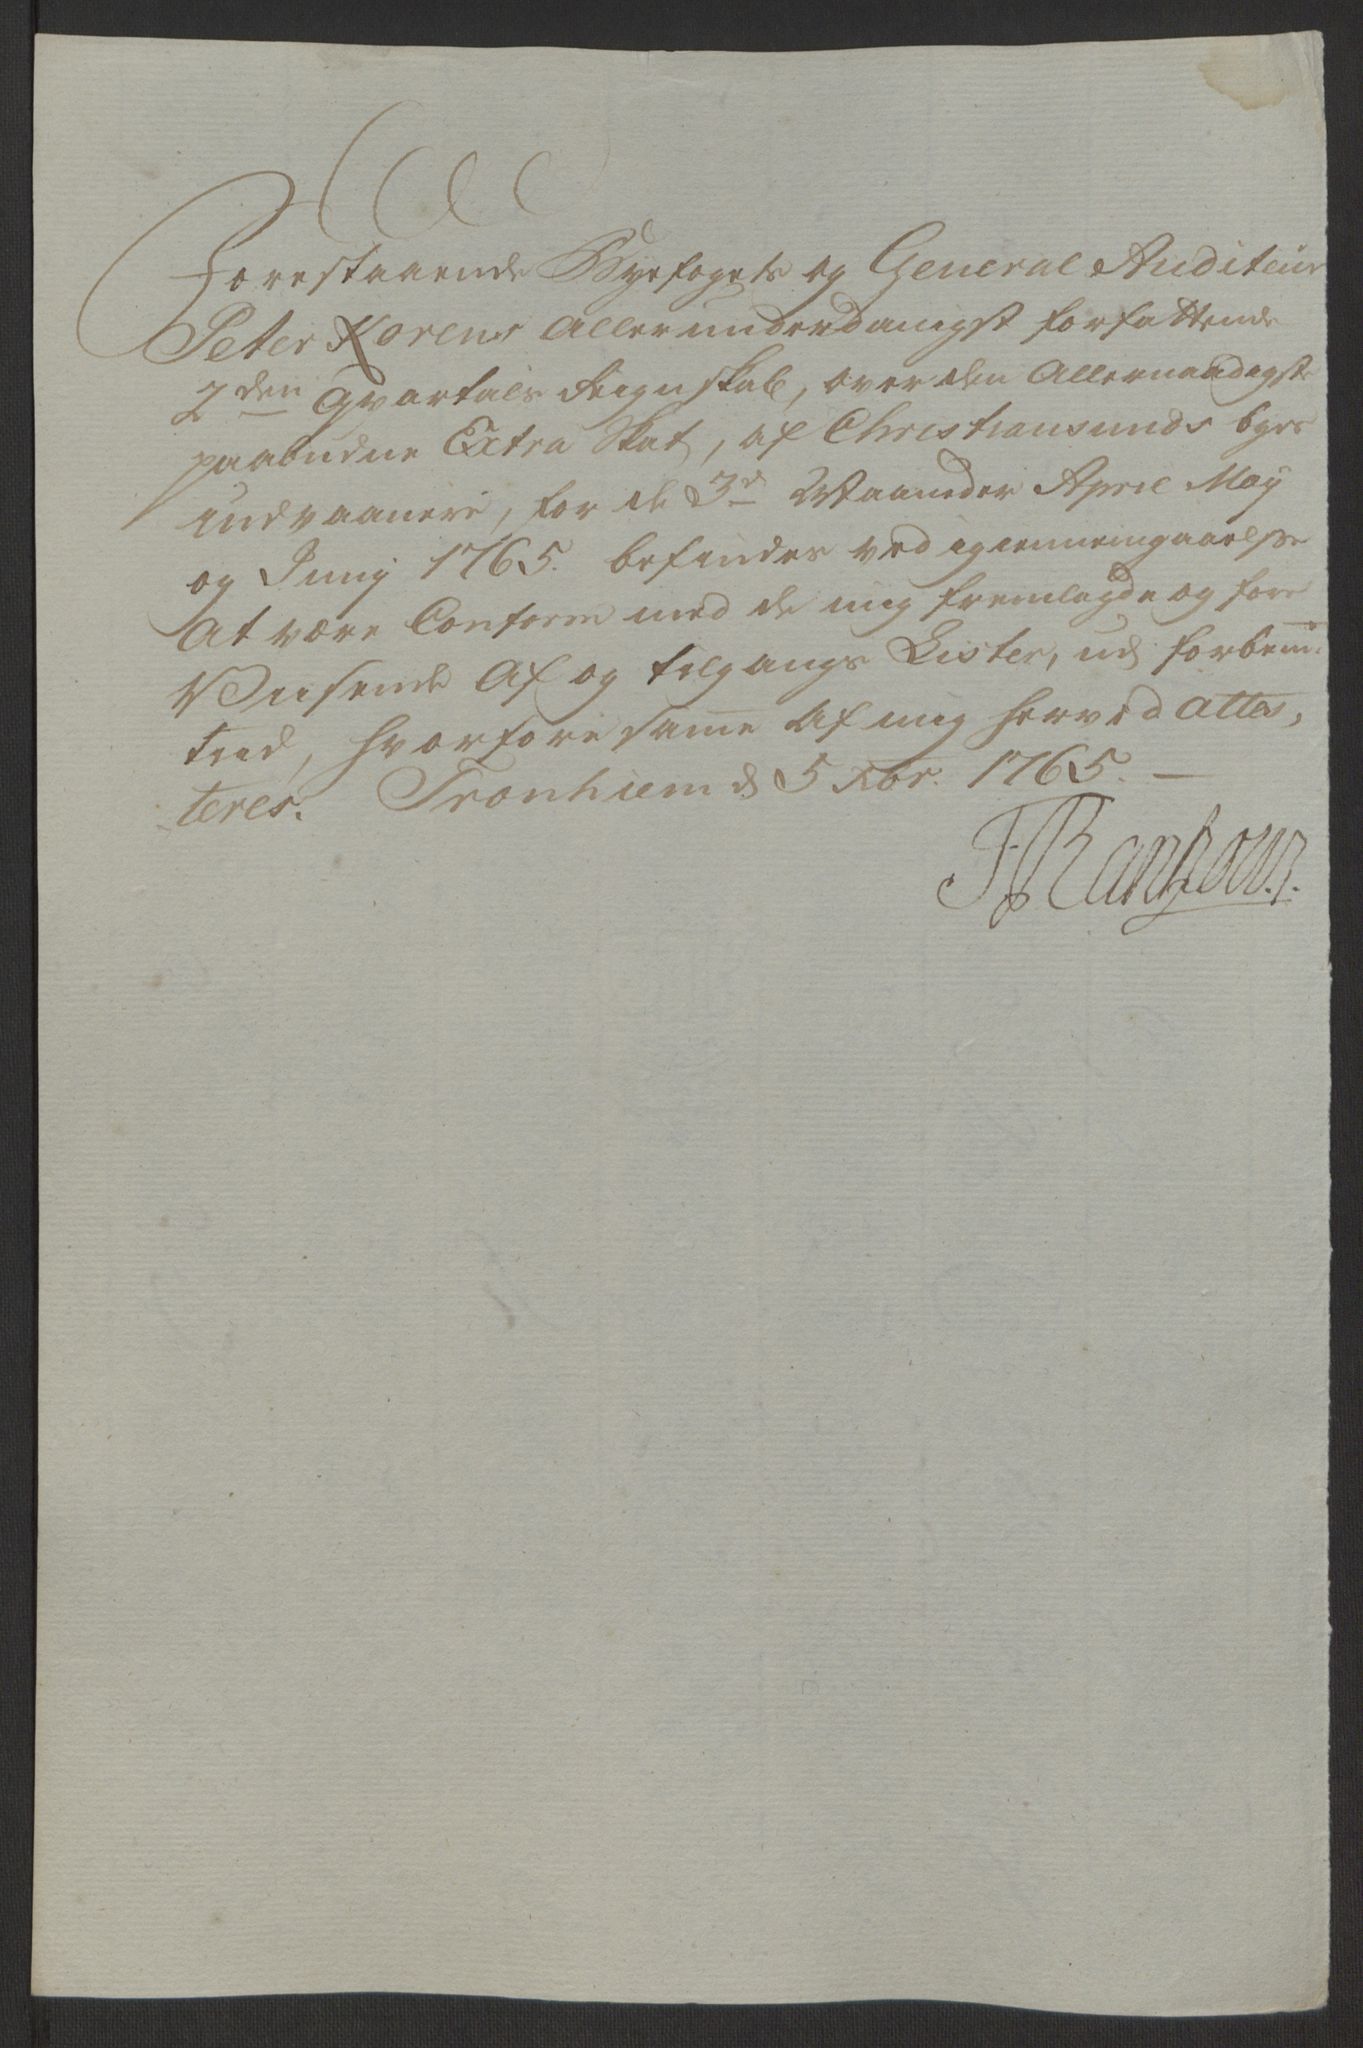 Forestaaende Byefogets og General Auditeür
Peter Korens Allerunderdanigst forfattende
2den Qvartals Reignskab, over den Allernaadigst
paabudne Extra Skat, af Christiansunds byes
indvaanere, for de 3de Maaneder April May
og Junij 1765. befindes ved igiennemgaaelse
At være Conform med de mig fremlagde og fore
Viisende Af og tilgangs Lister, ud forbem:
tiid, hvorfore samme Af mig herved Attes,
teres. Tronhiem d 5 Xbr. 1765.